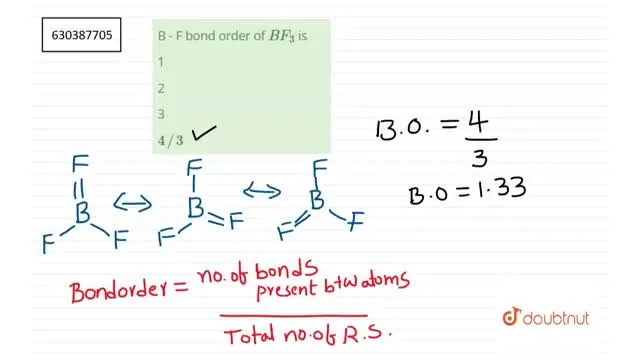 630387705
B - F bond order of BF₃ is
1
2
3
4/3 ✓
B.O. = 4/3
B.O = 1.33
F F F
B ↔ B ↔ B
F F F F F F
Bondorder = no. of bonds present b+w atoms
Total no. of R.S.
doubtnut